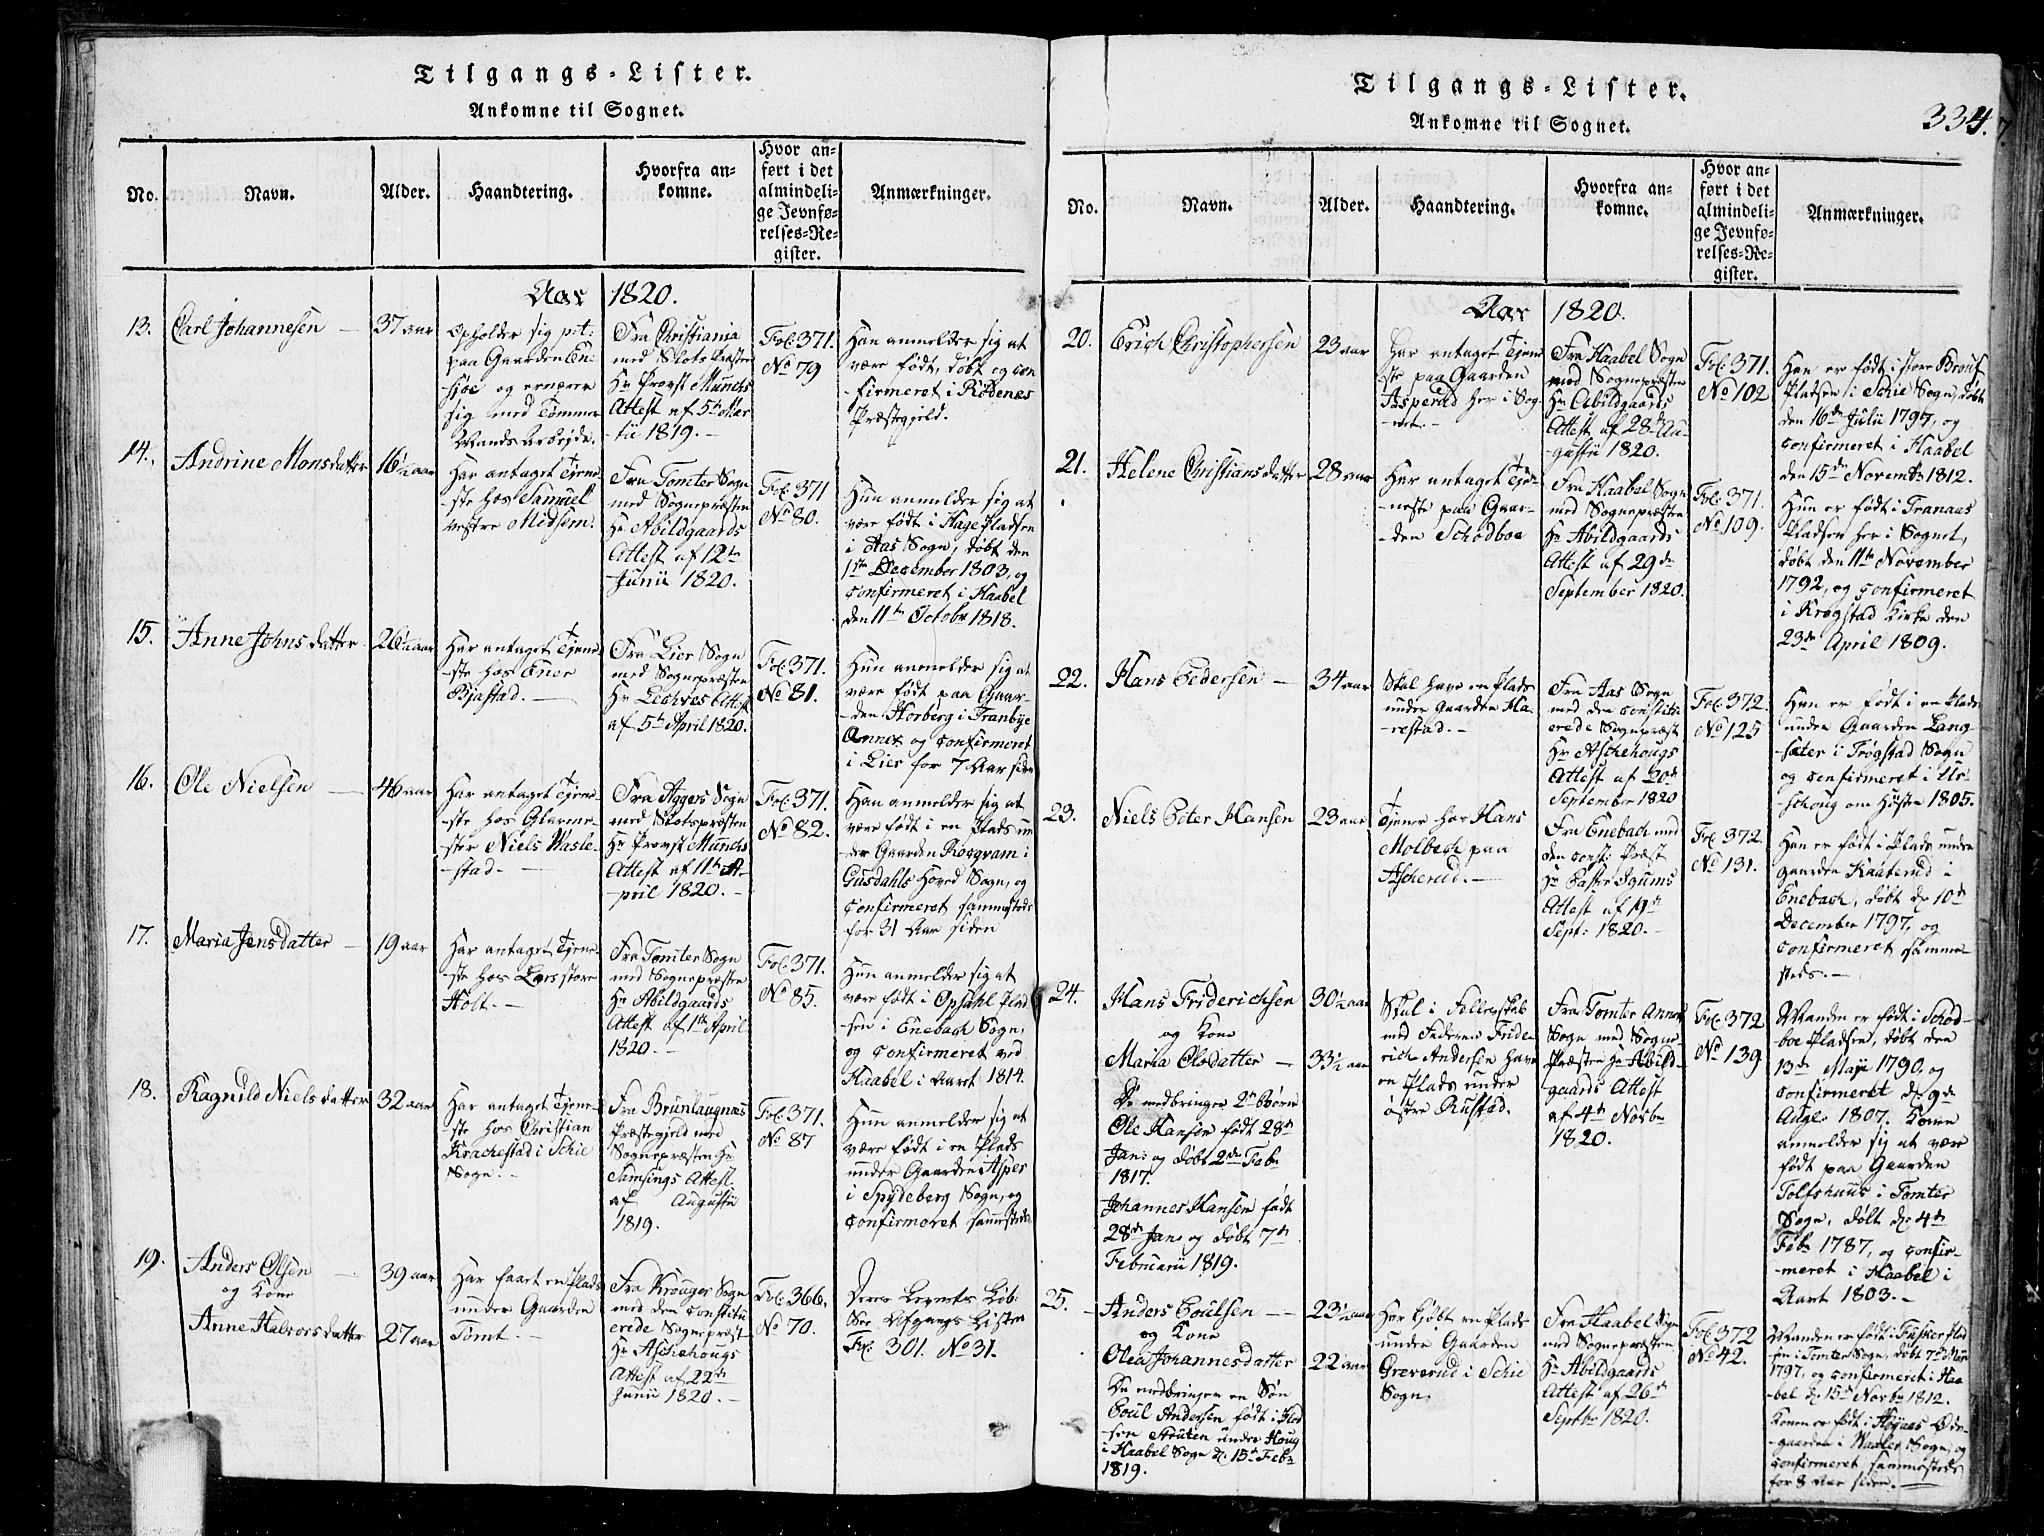 Tilgangs-Lister.
Ankomne til Sognet.
No.
Navn.
Alder.
Haandtering.
Hvorfra an-
komne.
Hvor an-
ført i det
almindeli-
ge Jevnfø-
relses-Re-
gister.
Anmærkninger.
Aar 1820.
13.
Carl Johannesen
37 aar
opholder sig pt:
paa Gaarden En-
og ernærer
sig med Tømmer
Mands Arbejde.
Fra Christiania
med Slots Præsten
Hr Provst Munchs
Attest af 5te Mar-
tii 1819.
Fol. 371.
No 79
Han anmelder sig at
være født, døbt og con
-firmeret i Rødenes
Præstegjeld.
14.
Andrine Monsdatter
16½ aar
Har antaget Tjene-
-ste hos Samuel
vestre Midsem.
Fra Tomter Sogn
med Sognepræsten
Hr Abildgaards
Attest af 12te
Junii 1820.
Fol. 371
No 80.
Hun anmelder sig at
være født i Hage Pladsen
i Aas Sogn, døbt den
11te December 1803, og
confirmeret i Haabel
den 11te Octobr 1818.
15.
Anne Johnsdatter
26½ aar
Har antaget Tjene-
-ste hos Ener
Bjastad.
Fra Lier Sogn
med Sognepræsten
Hr Lechves Attest
af 5te April 1820.
Fol. 371.
No 81.
Hun anmelder sig at
være født paa Gaar-
-den Horberg i Tranbye
Annex og confirmeret
i Lier for 7 Aar siden
16.
Ole Nielsen
46 aar
Har antaget Tjene-
-ste hos Glarme-
-ster Niels Wasle-
-stad.
Fra Aggers Sogn
med Slotspræsten
Hr Provst Munchs
Attest af 11te A-
-pril 1820.
Fol. 371.
No 82.
Han anmelder sig at
være født i en Plads un
-der Gaarden Rosgvam i
Gusdahls Hoved Sogn, og
confirmeret sammesteds
for 31 Aar siden
17.
Maria Jensdatter
19 aar
Har antaget Tjene-
-ste hos Lars store
Holt.
Fra Tomter Sogn
med Sognepræsten
Hr Abildgaards
Attest af 1te April
1820.
Fol. 371.
No 85.
Hun anmelder sig at
være født i Opsahl Plad
-sen i Enebach Sogn,
og confirmeret ved
Haabel i Aaret 1814.
18.
Ragnild Nielsdatter
32 aar
Har antaget Tjene-
-ste hos Christian
Krachestad i Schie
Sogn.
Fra Brunlaugnæs
Præstegjeld med
Sognepræsten Hr
Samsings Attest
af Augustii
1819.
Fol. 371.
No 87
Hun anmelder sig at
være født i en Plads
under Gaarden Asper
i Spydeberg Sogn, og
confirmeret sammesteds
19.
Anders Olsen
og Kone
Anne Halvorsdatter
39 aar
27 aar
Har faaet en Plads
under Gaarden
Tomt.
Fra Krouger Sogn
med den constitu
erede Sognepræst
Hr Aschehougs
Attest af 22de
Junii 1820.
Fol. 366.
No 70.
Deres Levnets Løb:
See Afgangs Listen
Fol. 301. No 31.
Tilgangs-Lister.
Ankomne til Sognet.
334.
No.
Navn.
Alder.
Haandtering.
Hvorfra an-
komne.
Hvor an-
ført i det
almindeli-
ge Jevnfø-
relses-Re-
gister.
Anmærkninger.
Aar 1820.
20.
Erich Christophersen
23 aar
Har antaget Tjene
-ste paa Gaarden
Asperud her i Sog-
-net.
Fra Haabel Sogn
med Sognepræsten
Hr Abildgaards
Attest af 28de Au-
-gustii 1820.
Fol. 371.
No 102
Han er født i store Bruuf
Pladsen i Schie Sogn, døbt
den 16de Julii 1797, og
confirmeret i Haabel
den 15de Novembr 1812.
21.
Helene Christiansdatter
28 aar
Har antaget Tje-
-neste paa Gaar-
-den Schodboe
Fra Haabel Sogn
med Sognepræsten
Hr Abildgaards
Attest af 29de
September 1820.
Fol. 371.
No 109.
Hun er født i Tranaas
Pladsen her i Sognet,
døbt den 11te November
1792, og confirmeret
i Krogstad Kirke den
23de April 1809.
22.
Hans Pedersen
34 aar
Skal have en Plads
under Gaarden Ha-
-restad.
Fra Aas Sogn
med den constitu
erede Sognepræst
Hr Aschehougs
Attest af 20de
September 1820
Fol. 372.
No 125
Han er født i en Plads
under Gaarden Lang-
-sæter i Trøgstad Sogn
og confirmeret i Ur-
-schoug om Høsten 1805.
23.
Niels Peter Hansen
23 aar
Tjener hos Hans
Molbech paa
Ascherud.
Fra Enebach med
den const: Præst
Hr Pastor Igums
Attest af 19de
Sept: 1820.
Fol. 372.
No 131.
Han er født i Plads under
Gaarden Kaaterud i
Enebach, døbt d. 10de
December 1797, og
confirmeret samme-
steds.
24.
Hans Friderichsen
og Kone
Maria Olsdatter
De medbringer 2de Børn
Ole Hansen født 28de
Jan: og døbt 2den Febr
1817.
Johannes Hansen født
28de Jan: og døbt 7de
Februarii 1819.
30½ aar
33½ aar
Skal i Fellesskab
med Faderen Fride-
rich Andersen have
en Plads under
østre Rustad.
Fra Tomter Annex
Sogn med Sogne-
Præsten Hr Abild-
gaards Attest
af 4de Novbr
1820.
Fol. 372
No 139
Manden er født i Schod-
-boe Pladsen, døbt den
13de Maji 1790. og
confirmeret d. 9de
Aug: 1807. Konen
anmelder sig at være
født paa Gaarden
Tolfshuus i Tomter
Sogn, døbt d. 4de
Febr 1787, og confir-
-meret i Haabel i
Aaret 1803.
25.
Anders Poulsen
og Kone
Olea Johannesdatter
De medbringer en Søn
Poul Andersen født i Plad
-sen Struten under Houg
i Haabel Sogn d. 15de Febr
1819.
23½ aar
22 aar
Har kjøbt en Plads
under Gaarden
Greverud i Schie
Sogn.
Fra Haabel Sogn
med Sognepræsten
Hr Abildgaards
Attest af 26de
Septbr 1820.
Fol. 372
No 42.
Manden er født i Fusker Plad
-sen i Tomter Sogn, døbt 7de Maji
1797, og confirmeret i Haa-
-bel d. 15de Novbr 1812.
Konen er født i Høyaas Øde-
-gaarden i Waaler Sogn, og
confirmeret sammesteds
for 8 Aar siden.